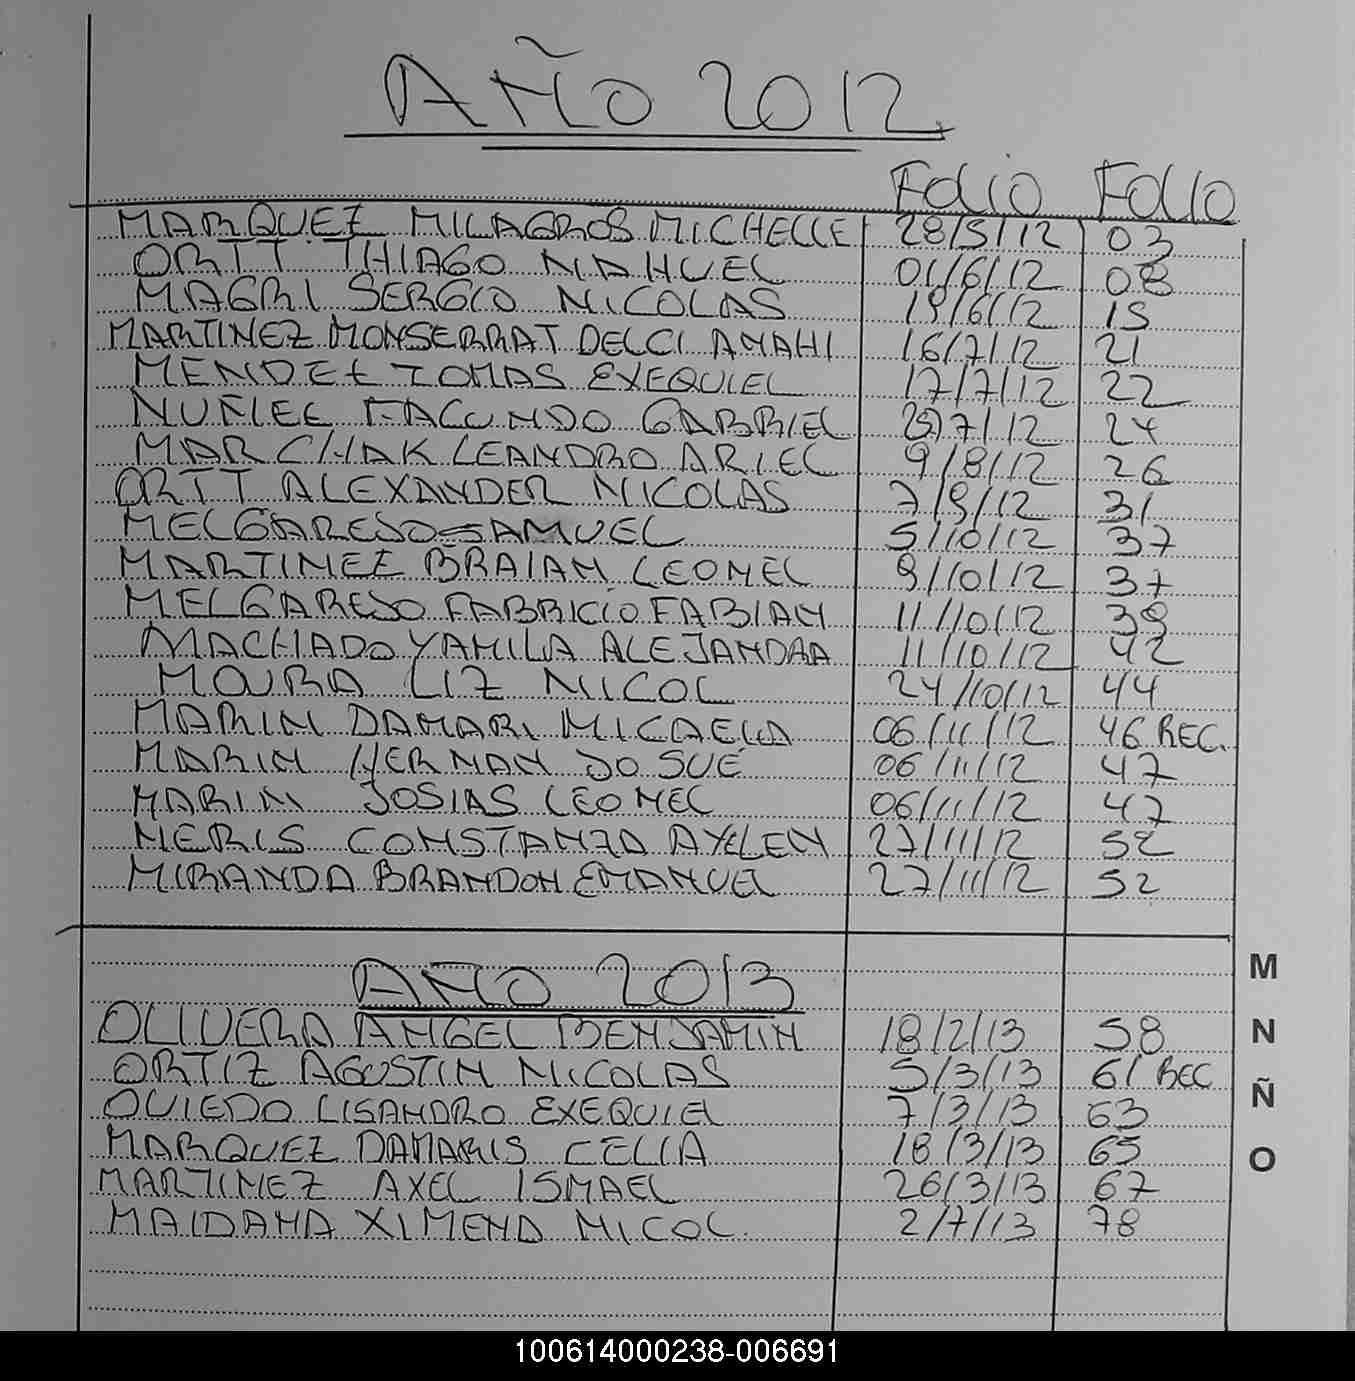 AÑO 2012
FOLIO FOLIO
MARQUEZ MILAGROS MICHELLE 28/5/12 03
ORTT THIAGO NAHUEL 01/6/12 08
MAGRI SERGIO NICOLAS 19/6/12 15
MARTINEZ MONSERRAT DELCI ANAHI 16/7/12 21
MENDEZ TOMAS EXEQUIEL 17/7/12 22
FACUNDO GABRIEL 24
MARCHAK LEANDRO ARIEL 9/8/12 26
ORTT ALEXANDER NICOLAS 7/9/12 31
MELGAREJO SAMUEL 5/10/12 37
MARTINEZ BRAIAN LEONEL 9/10/12 37
MELGAREJO FABRICIO FABIAN 11/10/12 39
MACHADO YAMILA ALEJANDRA 11/10/12 42
MOURA LIZ NICOL 24/10/12 44
MARIN DAMARI MICAELA 06/11/12 46 REC.
MARIN HERNAN JOSUÉ 06/11/12 47
MARIN JOSIAS LEONEL 06/11/12 47
NERIS CONSTANZA AYELEN 27/11/12 52
MIRANDA BRANDON EMANUEL 27/11/12 52
AÑO 2013
OLIVERA ANGEL BENJAMIN 18/2/13 58
ORTIZ AGUSTIN NICOLAS 5/3/13 61 REC
OVIEDO LISANDRO EXEQUIEL 7/3/13 63
MARQUEZ DAMARIS CELIA 18/3/13 65
MARTINEZ AXEL ISMAEL 26/3/13 67
MAIDANA XIMENA NICOL. 2/7/13 78
M
N
Ñ
O
100614000238-006691